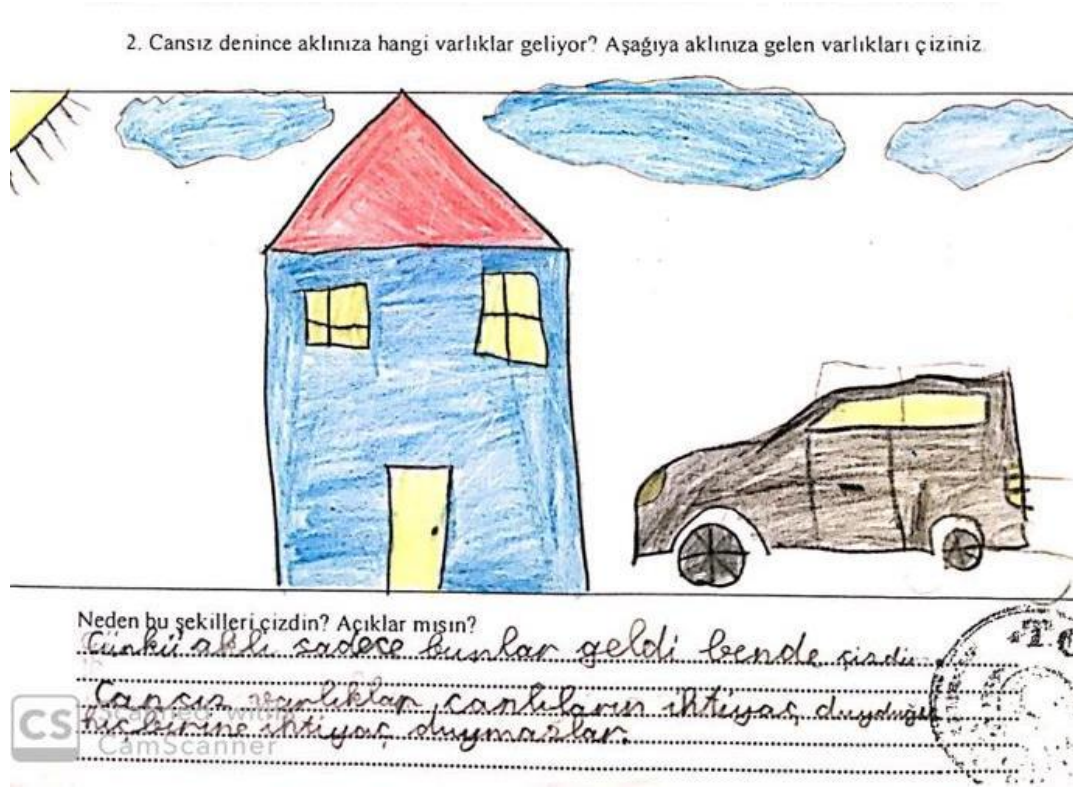 2. Cansız denince aklınıza hangi varlıklar geliyor? Aşağıya aklınıza gelen varlıkları çiziniz
Neden bu şekilleri çizdin? Açıklar mısın?
Çünkü aklı sadece bunlar geldi bende çizdi
Cansız varlıklar canlıların ihtiyaç duyduğu
hiçbirine ihtiyaç duymazlar.
CS
CamScanner
T.C